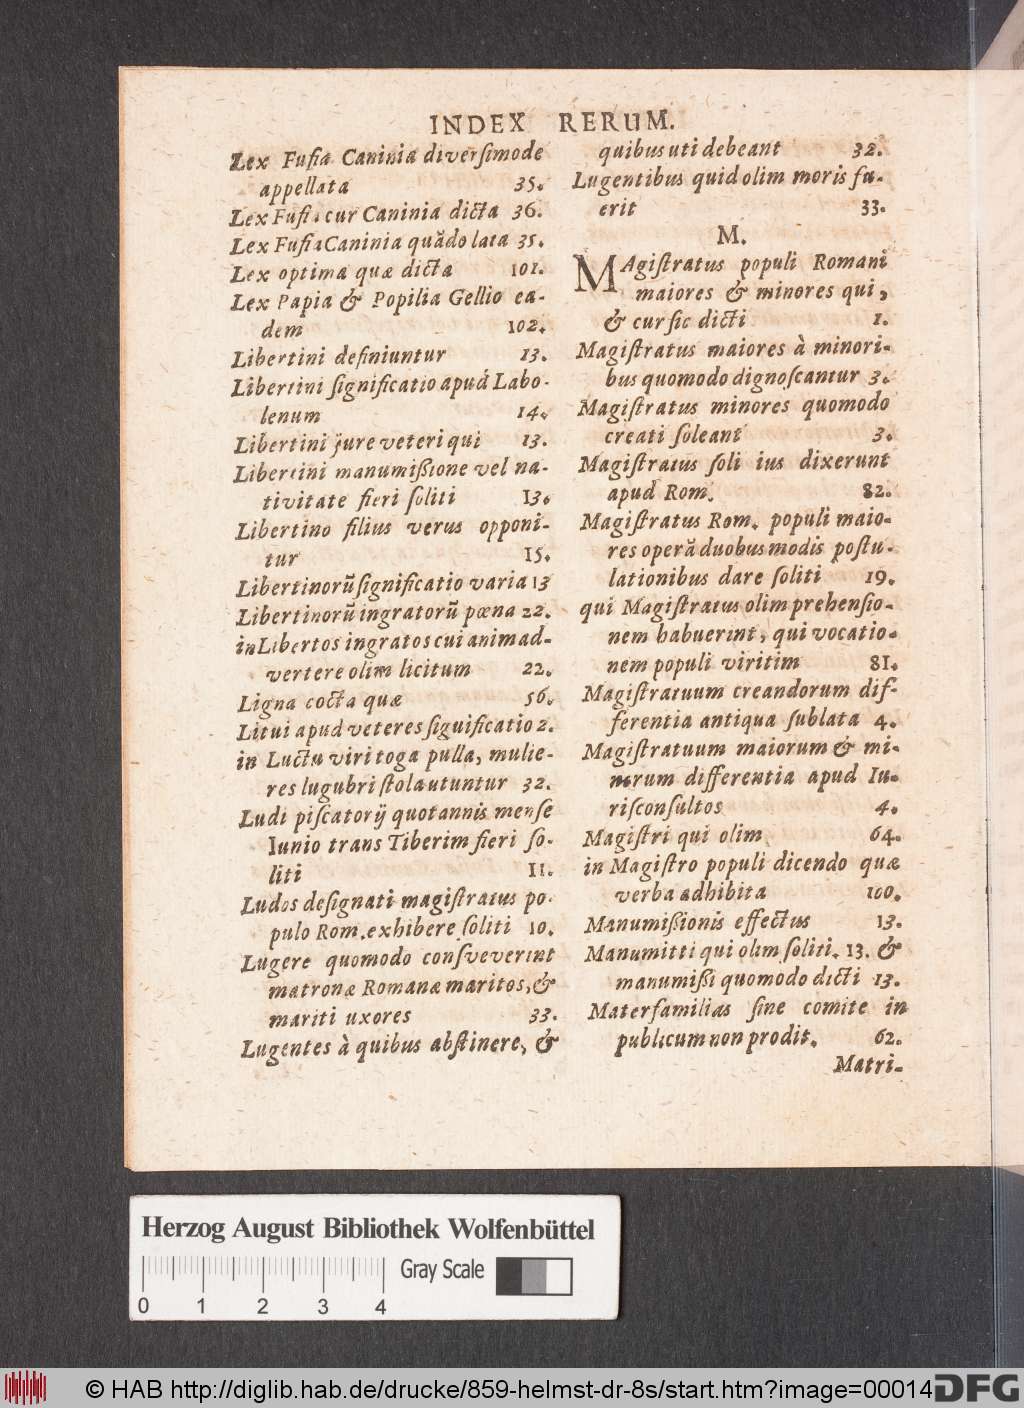 INDEX RERUM.
Lex Fuſia Caninia diverſimode
appellata 35.
Lex Fuſia cur Caninia dicta 36.
Lex Fuſia Caninia quãdo lata 35.
Lex optima quæ dicta 101.
Lex Papia & Popilia Gellio ea-
dem 102.
Libertini definiuntur 13.
Libertini ſignificatio apud Labo-
lenum 14.
Libertini jure veteri qui 13.
Libertini manumiſſione vel na-
tivitate fieri ſoliti 13.
Libertino filius verus opponi-
tur 15.
Libertinorũ ſignificatio varia 13
Libertinorũ ingratorũ pœna 22.
in Libertos ingratos cui animad-
vertere olim licitum 22.
Ligna cocta quæ 56.
Litui apud veteres ſiguificatio 2.
in Luctu viri toga pulla, mulie-
res lugubri ſtola utuntur 32.
Ludi piſcatorij quotannis menſe
Iunio trans Tiberim fieri ſo-
liti 11.
Ludos deſignati magiſtratus po-
pulo Rom. exhibere ſoliti 10.
Lugere quomodo conſveverint
matronæ Romanæ maritos, &
mariti uxores 33.
Lugentes à quibus abſtinere, &
quibus uti debeant 32.
Lugentibus quid olim moris fu-
erit 33.
M.
MAgiſtratus populi Romani
maiores & minores qui,
& cur ſic dicti 1.
Magiſtratus maiores à minori-
bus quomodo dignoſcantur 3.
Magiſtratus minores quomodo
creati ſoleant 3.
Magiſtratus ſoli ius dixerunt
apud Rom. 82.
Magiſtratus Rom. populi maio-
res operã duobus modis poſtu-
lationibus dare ſoliti 19.
qui Magiſtratus olim prehenſio-
nem habuerint, qui vocatio-
nem populi viritim 81.
Magiſtratuum creandorum dif-
ferentia antiqua ſublata 4.
Magiſtratuum maiorum & mi-
norum differentia apud Iu-
riſconſultos 4.
Magiſtri qui olim 64.
in Magiſtro populi dicendo quæ
verba adhibita 100.
Manumiſſionis effectus 13.
Manumitti qui olim ſoliti. 13. &
manumiſſi quomodo dicti 13.
Materfamilias ſine comite in
publicum non prodit. 62.
Matri-
Herzog August Bibliothek Wolfenbüttel
Gray Scale
0 1 2 3 4
© HAB http://diglib.hab.de/drucke/859-helmst-dr-8s/start.htm?image=00014
DFG